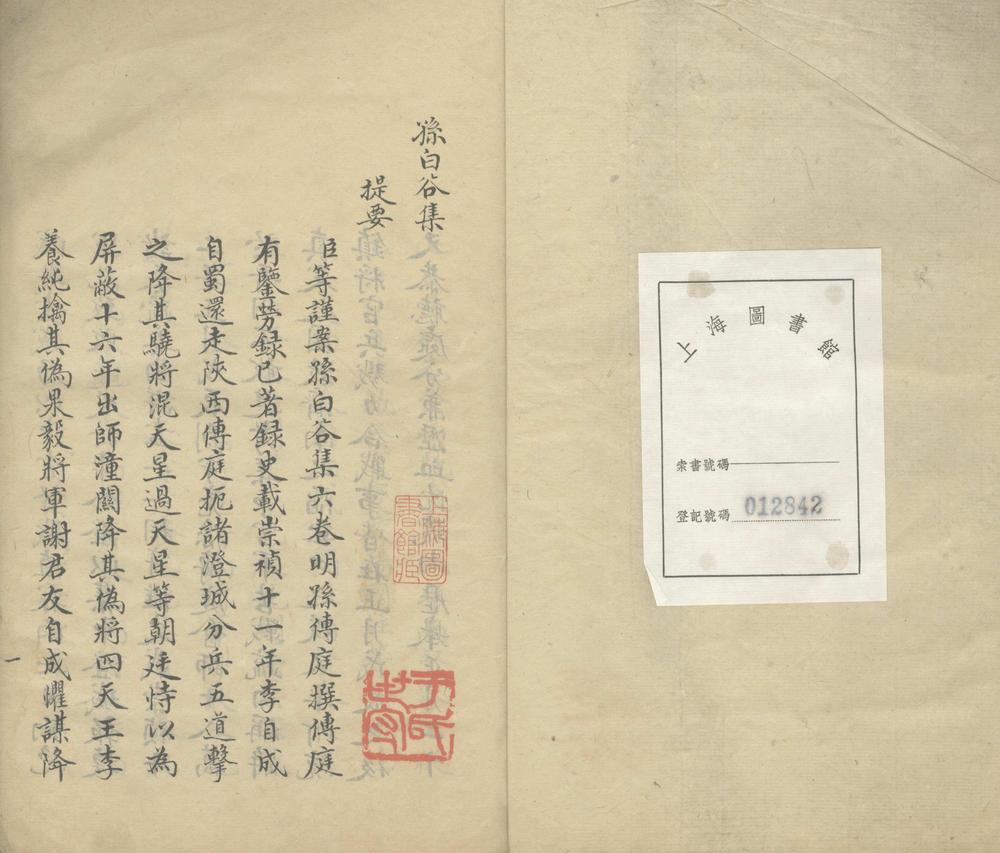 上海圖書館
索書號碼
登記號碼 012842
孫白谷集
提要
臣等謹案孫白谷集六卷明孫傳庭撰傳庭
有鑒勞録已著録史載崇禎十一年李自成
自蜀還走陝西傳庭扼諸澄城分兵五道擊
之降其驍將混天星過天星等朝廷恃以為
屏蔽十六年出師潼關降其偽將四天王李
養純擒其偽果毅將軍謝君友自成懼謀降
一
上海圖書館藏